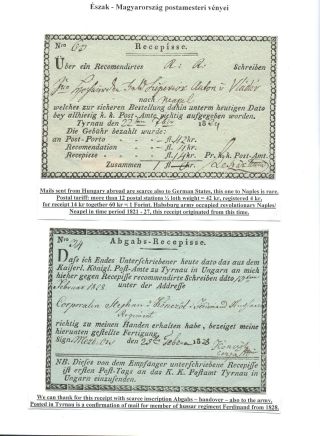 Észak - Magyarország postamesteri vényei
Nro 60 Recepisse.
Über ein Recomendirtes R: R: Schreiben
Anton v
nach Neapel
welches zur sicheren Bestellung dahin unterm heutigen Dato
bey allhiesig k. k. Post-Amte richtig aufgegeben worden.
Tyrnau den 22
Die Gebühr bezahlt wurde:
an Post-Porto fl. 42 kr.
Recomendation fl. 4 kr.
Recepisse fl. 14 kr. Pr. k. k. Post-Amt.
Zusammen 1 fl. kr.
Mails sent from Hungary abroad are scarce also to German States, this one to Naples is rare.
Postal tariff: more than 12 postal stations ½ loth weight = 42 kr, registered 4 kr,
for receipt 14 kr together 60 kr = 1 Forint. Habsburg army occupied revolutionary Naples/
Neapel in time period 1821 - 27, this receipt originated from this time.
Nro 24 Abgabs-Recepisse.
Daß ich Endes Unterschriebener heute dato das aus dem
Kaiserl. Königl. Post-Amte zu Tyrnau in Ungarn an mich
hieher gegen Recepisse recomendirte Schreiben ddto
Februar 1828 unter der Addresse
Corporalin Stephan v Ferdinand
Regiment
richtig zu meinen Handen erhalten habe, bezeiget meine
hierunten gestellte Fertigung.
Sign. den 25 1828
NB. Dieses von dem Empfänger unterschriebene Recepisse
ist ersten Post-Tags an das K. K. Postamt Tyrnau im
Ungarn einzusenden.
We can thank for this receipt with scarce inscription Abgabs – handover – also to the army.
Posted in Tyrnau is a confirmation of mail for member of hussar regiment Ferdinand from 1828.